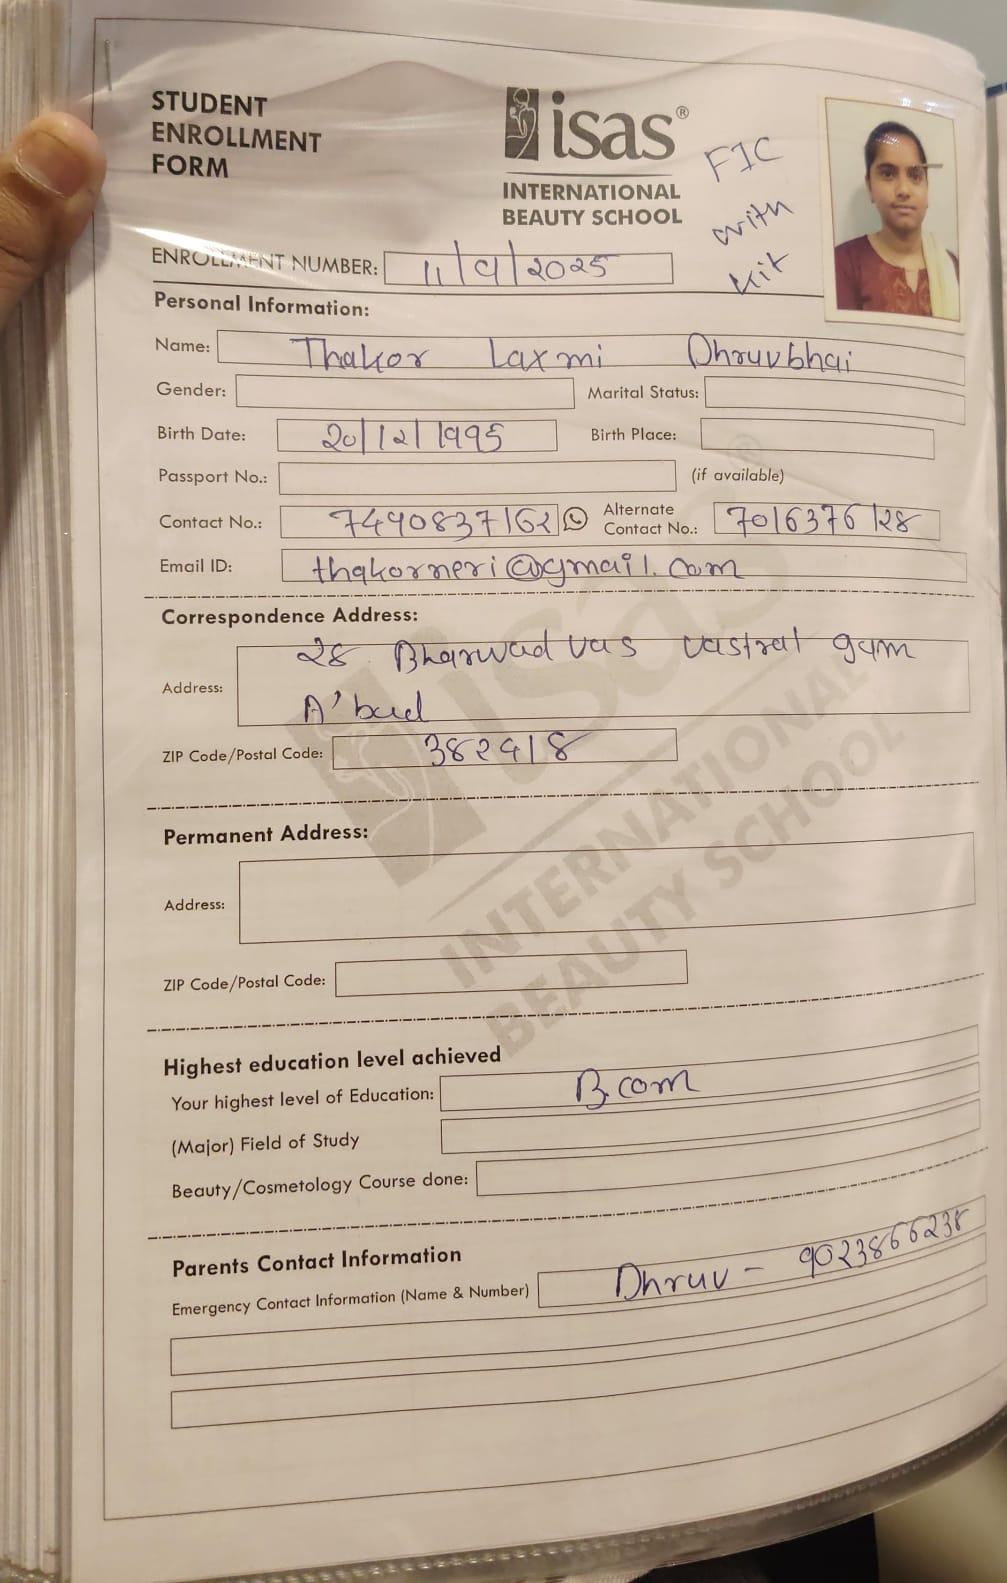 STUDENT
ENROLLMENT
FORM
isas®
INTERNATIONAL
BEAUTY SCHOOL
FIC
with
kit
ENROLLMENT NUMBER: 11/9/2025
Personal Information:
Name: Thakor Laxmi Dhruvbhai
Gender: Marital Status:
Birth Date: 20/12/1995 Birth Place:
Passport No.: (if available)
Contact No.: 7490837162 Alternate Contact No.: 7016376128
Email ID: thakorneri@gmail.com
Correspondence Address:
Address: 28 Bharwad vas vastral gam
A'bad
ZIP Code/Postal Code: 382418
Permanent Address:
Address:
ZIP Code/Postal Code:
Highest education level achieved
Your highest level of Education: B.com
(Major) Field of Study
Beauty/Cosmetology Course done:
Parents Contact Information
Emergency Contact Information (Name & Number) Dhruv - 9023866238
isas®
INTERNATIONAL
BEAUTY SCHOOL